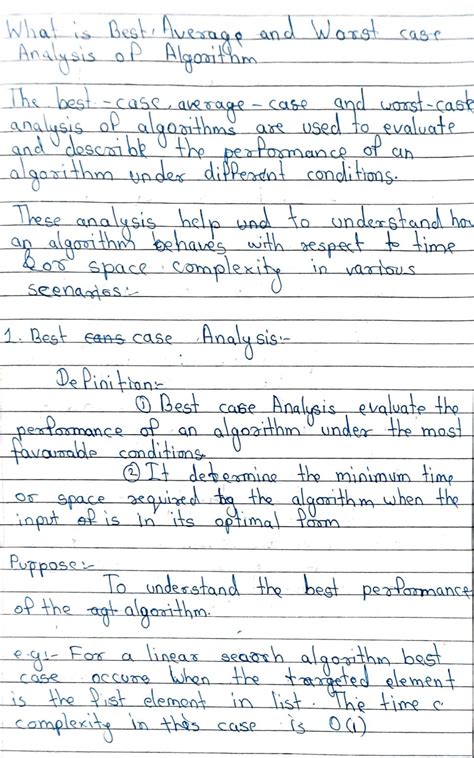 What is Best, Average and Worst case
Analysis of Algorithm
The best-case, average-case and worst-case
analysis of algorithms are used to evaluate
and describe the performance of an
algorithm under different conditions.
These analysis help und to understand how
an algorithm behaves with respect to time
& or space complexity in various
scenarios:-
1. Best cans case Analysis:-
Definition:-
① Best case Analysis evaluate the
performance of an algorithm under the most
favourable conditions.
② It determine the minimum time
or space required by the algorithm when the
input of is in its optimal form
Puppose:-
To understand the best performance
of the agt algorithm.
e.g:- For a linear search algorithm best
case occurs when the targeted element
is the fist element in list. The time c
complexity in this case is O(1)